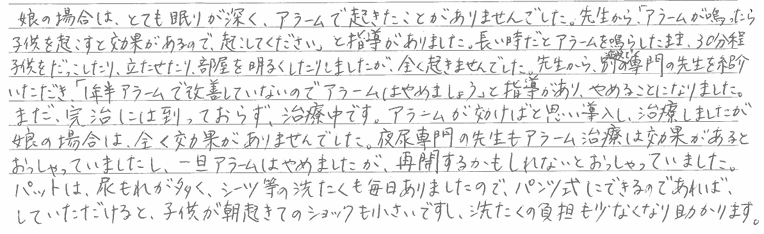 娘の場合は、とても眠りが深く、アラームで起きたことがありませんでした。先生から、「アラームが鳴ったら
子供を起こすと効果があるので、起こしてください」と指導がありました。長い時だとアラームを鳴らしたまま、30分程
子供をだっこしたり、立たせたり、部屋を明るくしたりしましたが、全く起きませんでした。先生から、別の専門の先生を紹介
いただき「1年半アラームで改善していないのでアラームはやめましょう」と指導があり、やめることになりました。
まだ、完治には到っておらず、治療中です。アラームが効けばと思い導入し、治療しましたが
娘の場合は、全く効果がありませんでした。夜尿専門の先生もアラーム治療は効果があると
おっしゃっていましたし、一旦アラームはやめましたが、再開するかもしれないとおっしゃっていました。
パットは、尿もれが多く、シーツ等の洗たくも毎日ありましたので、パンツ式にできるのであれば、
していただけると、子供が朝起きてのショックも小さいですし、洗たくの負担も少なくなり助かります。